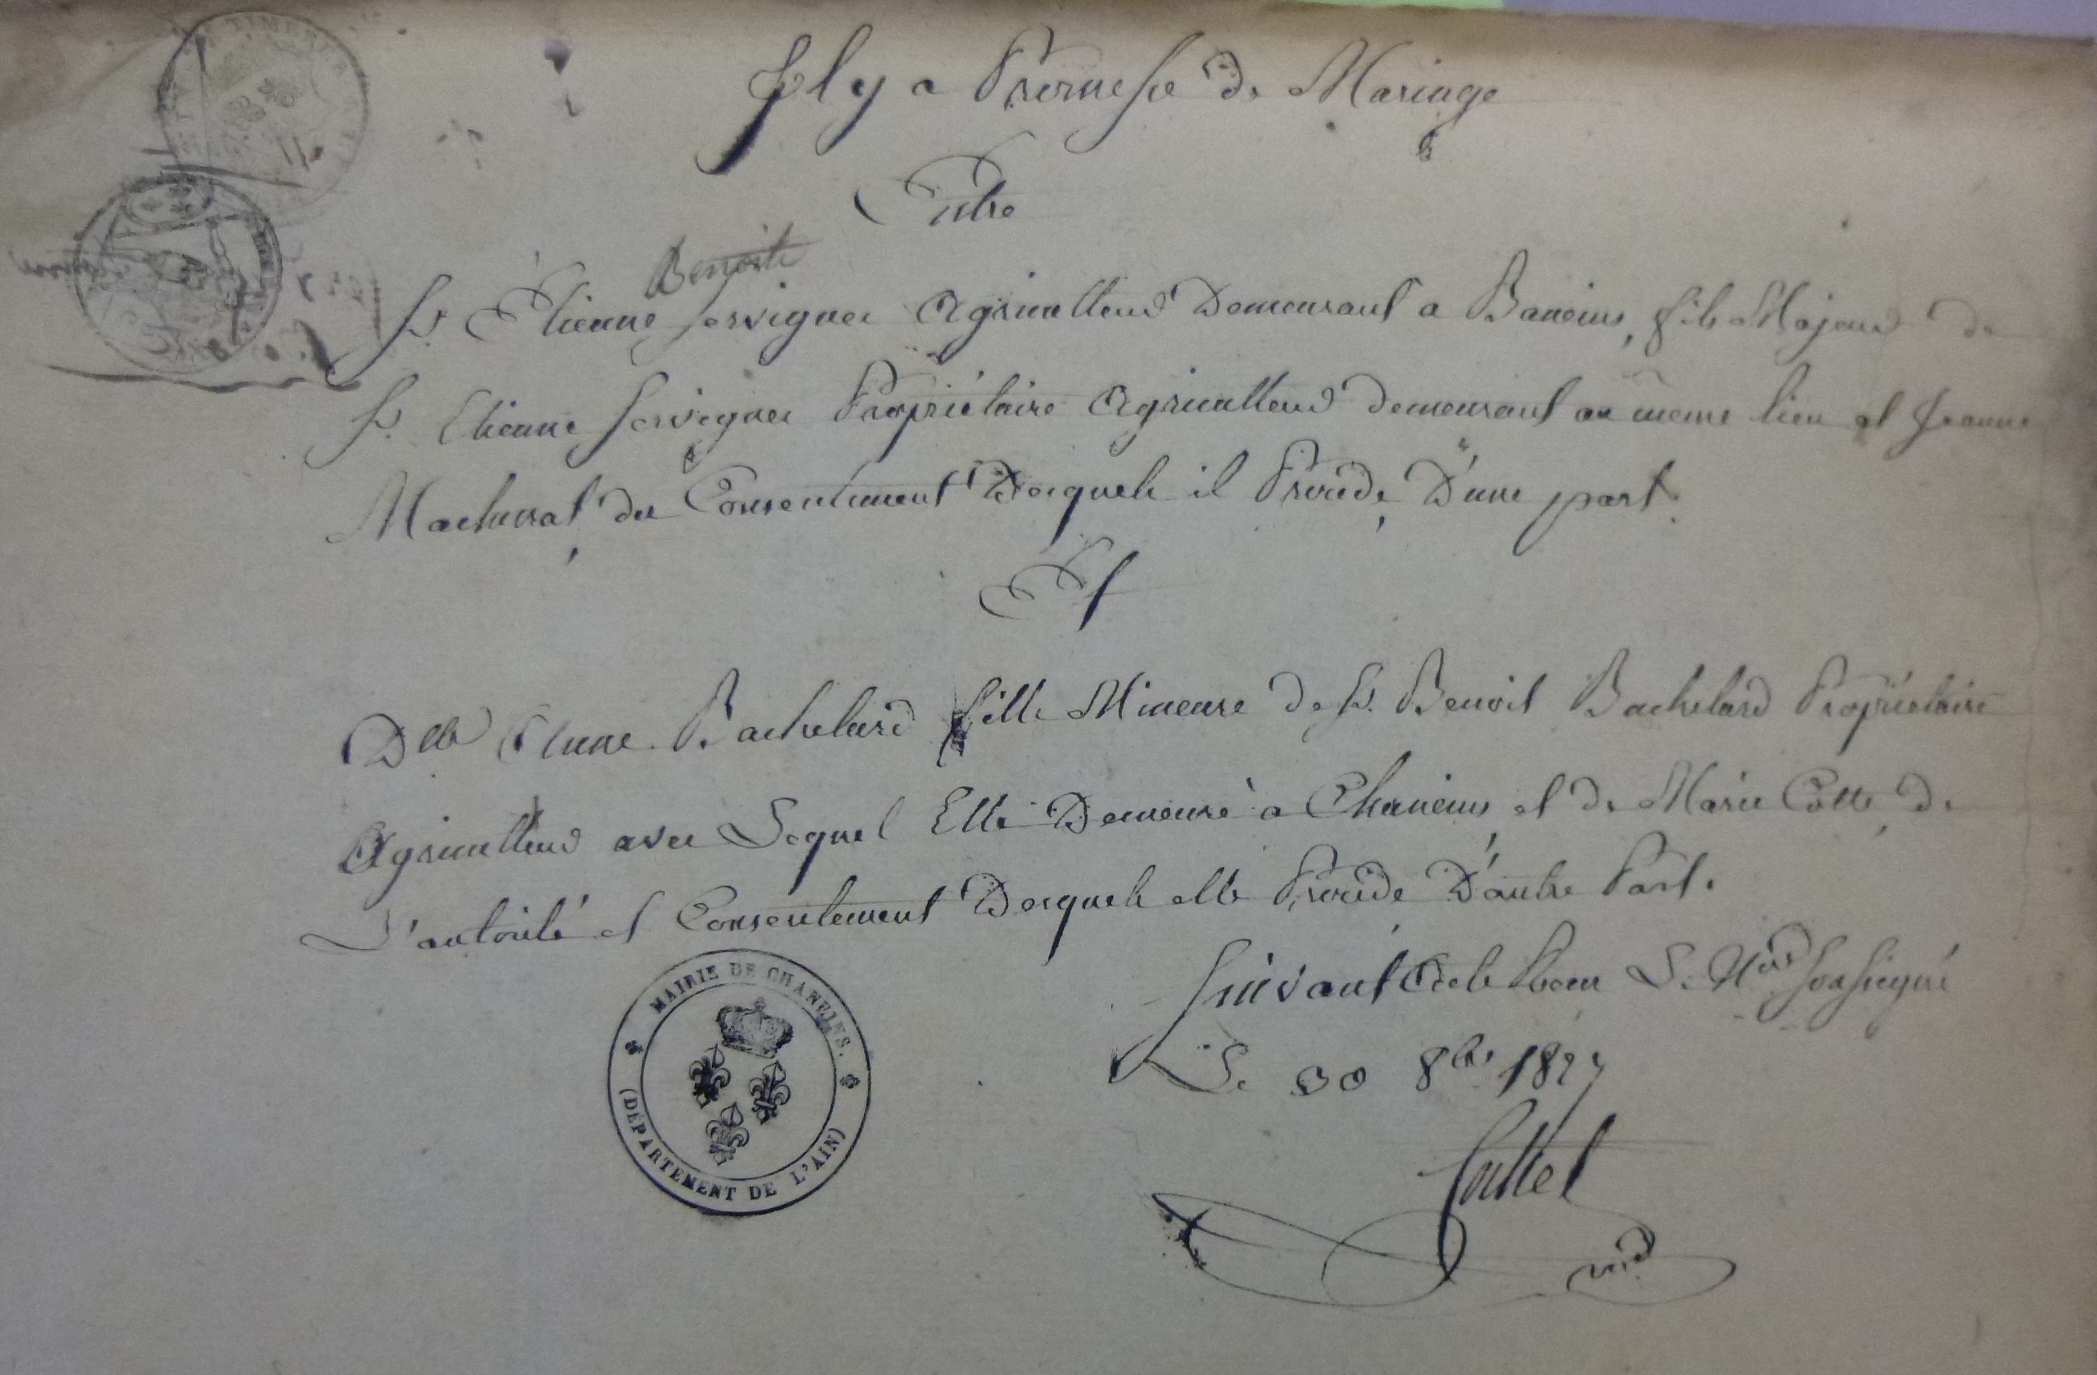 TIMBRE
Il y a Promesse de Mariage
Entre
Benoite
Sr. Etienne Servignee Agriculteur Demeurant a Baneins, fils Majeur de
Sr. Etienne Servignee Propriétaire Agriculteur demeurant au même lieu et Jeanne
Machurat, du Consentiment Desquels il Procède, D'une part.
Et
Dlle Anne Bachelard fille Mineure De Sr. Benoit Bachelard Propriétaire
Agriculteur avec Lequel Elle Demeure a Chaneins, et de Marie Cotte, de
L'autorité et Consentement Desquels elle Procède D'autre Part.
Suivant Acte Recu Le Nre Soussigné
Le 30 8bre 1827
MAIRIE DE CHANEINS.
(DÉPARTEMENT DE L'AIN)